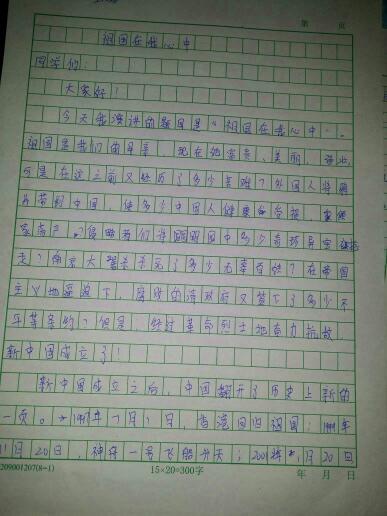 第 页
祖国在我心中
同学们：
大家好！
今天我演讲的题目是“祖国在我心中”。
祖国是我们的母亲，现在她富贵、美丽、
可是在这之前又经历了多少苦难？外国人将鸦
片带到中国，使多少中国人健康
家 产。侵略者们将圆明园中多少奇珍异宝
走？南京大屠杀杀死了多少无辜百姓？在帝国
主义地 下，腐败的清政府又签下了多少不
平等条约？但是，经过革命烈士地奋力抗敌，
新中国成立了！
新中国成立之后，中国翻开了历史上新的
一页。1997年7月1日，香港回归祖国；1999年
11月20日，神舟一号飞船升天；2001年 月20日
209001207(8-1)
15×20=300字
年 月 日